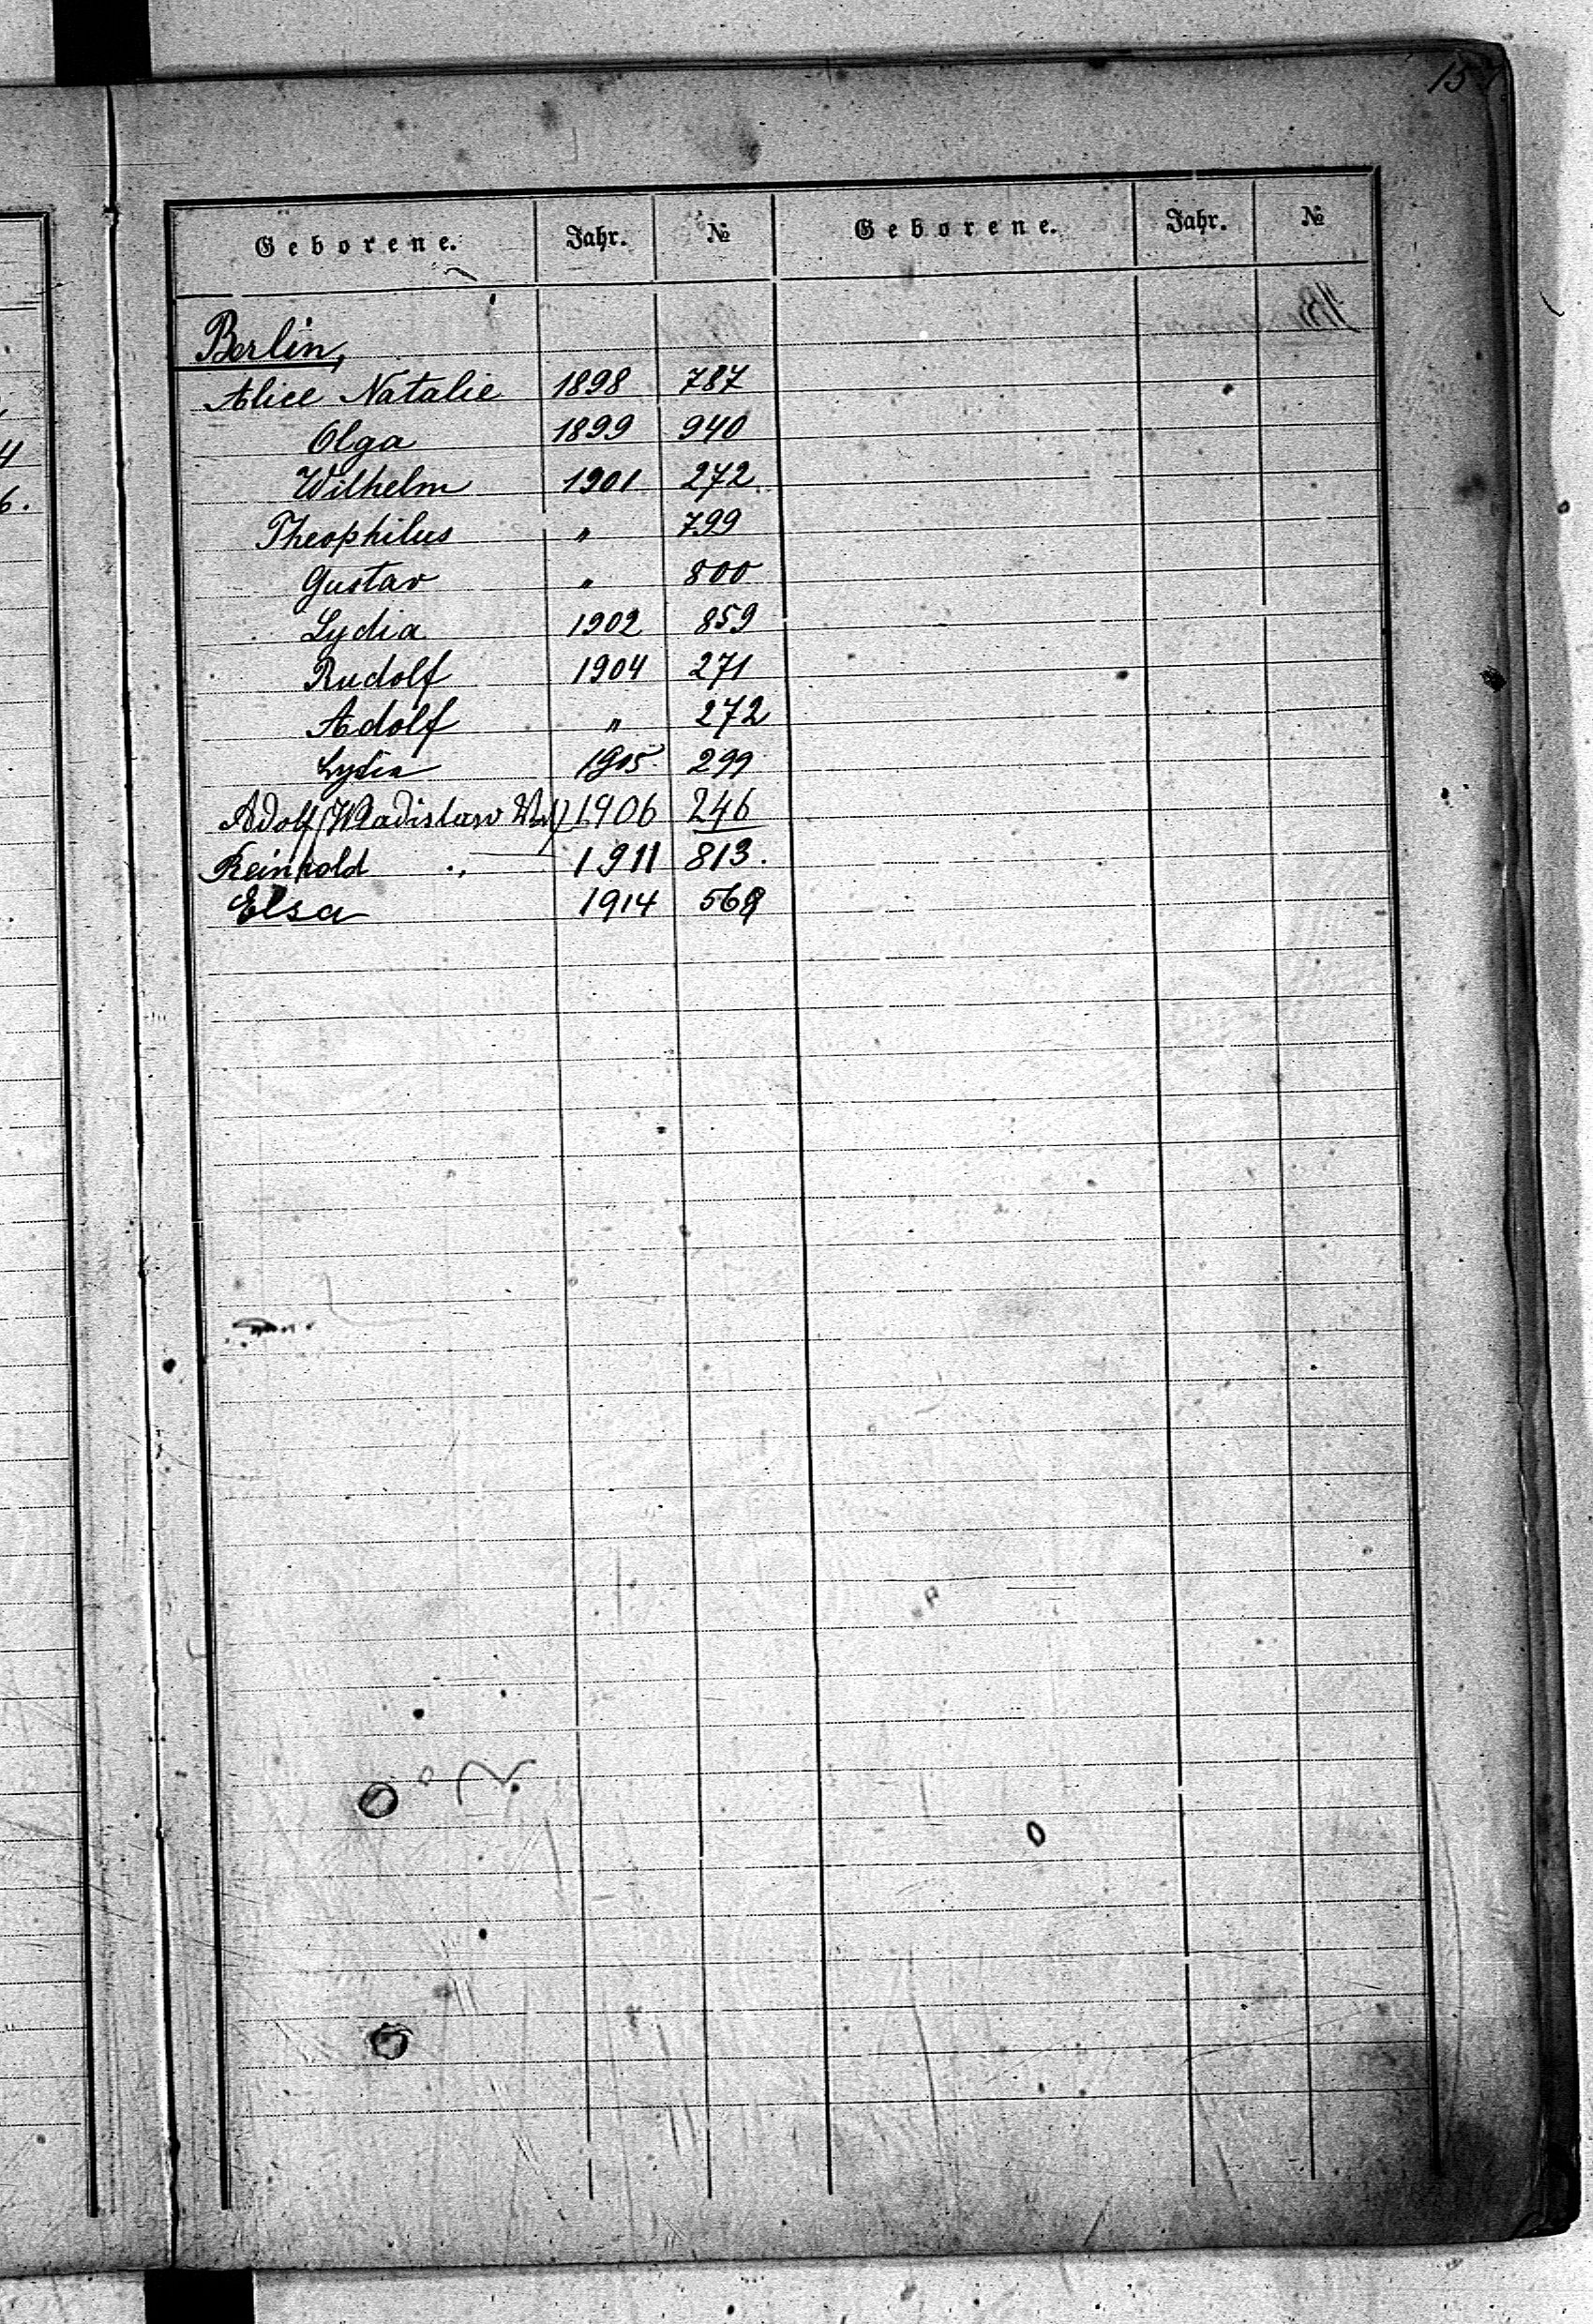 15
Geborene. Jahr. № Geborene. Jahr. №
Berlin,
Alice Natalie 1898 787
Olga 1899 940
Wilhelm 1901 272
Theophilus " 799
Gustav " 800
Lydia 1902 859
Rudolf 1904 271
Adolf " 272
Lydia 1905 299
Adolf (Wladislaw 1906 246
Reinhold " 1911 813.
Elsa 1914 569
4
6.